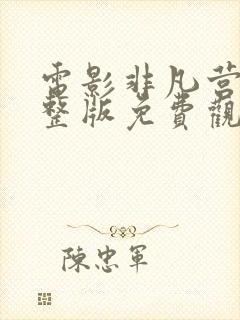 電影非凡营
整版免費觀
陳忠軍